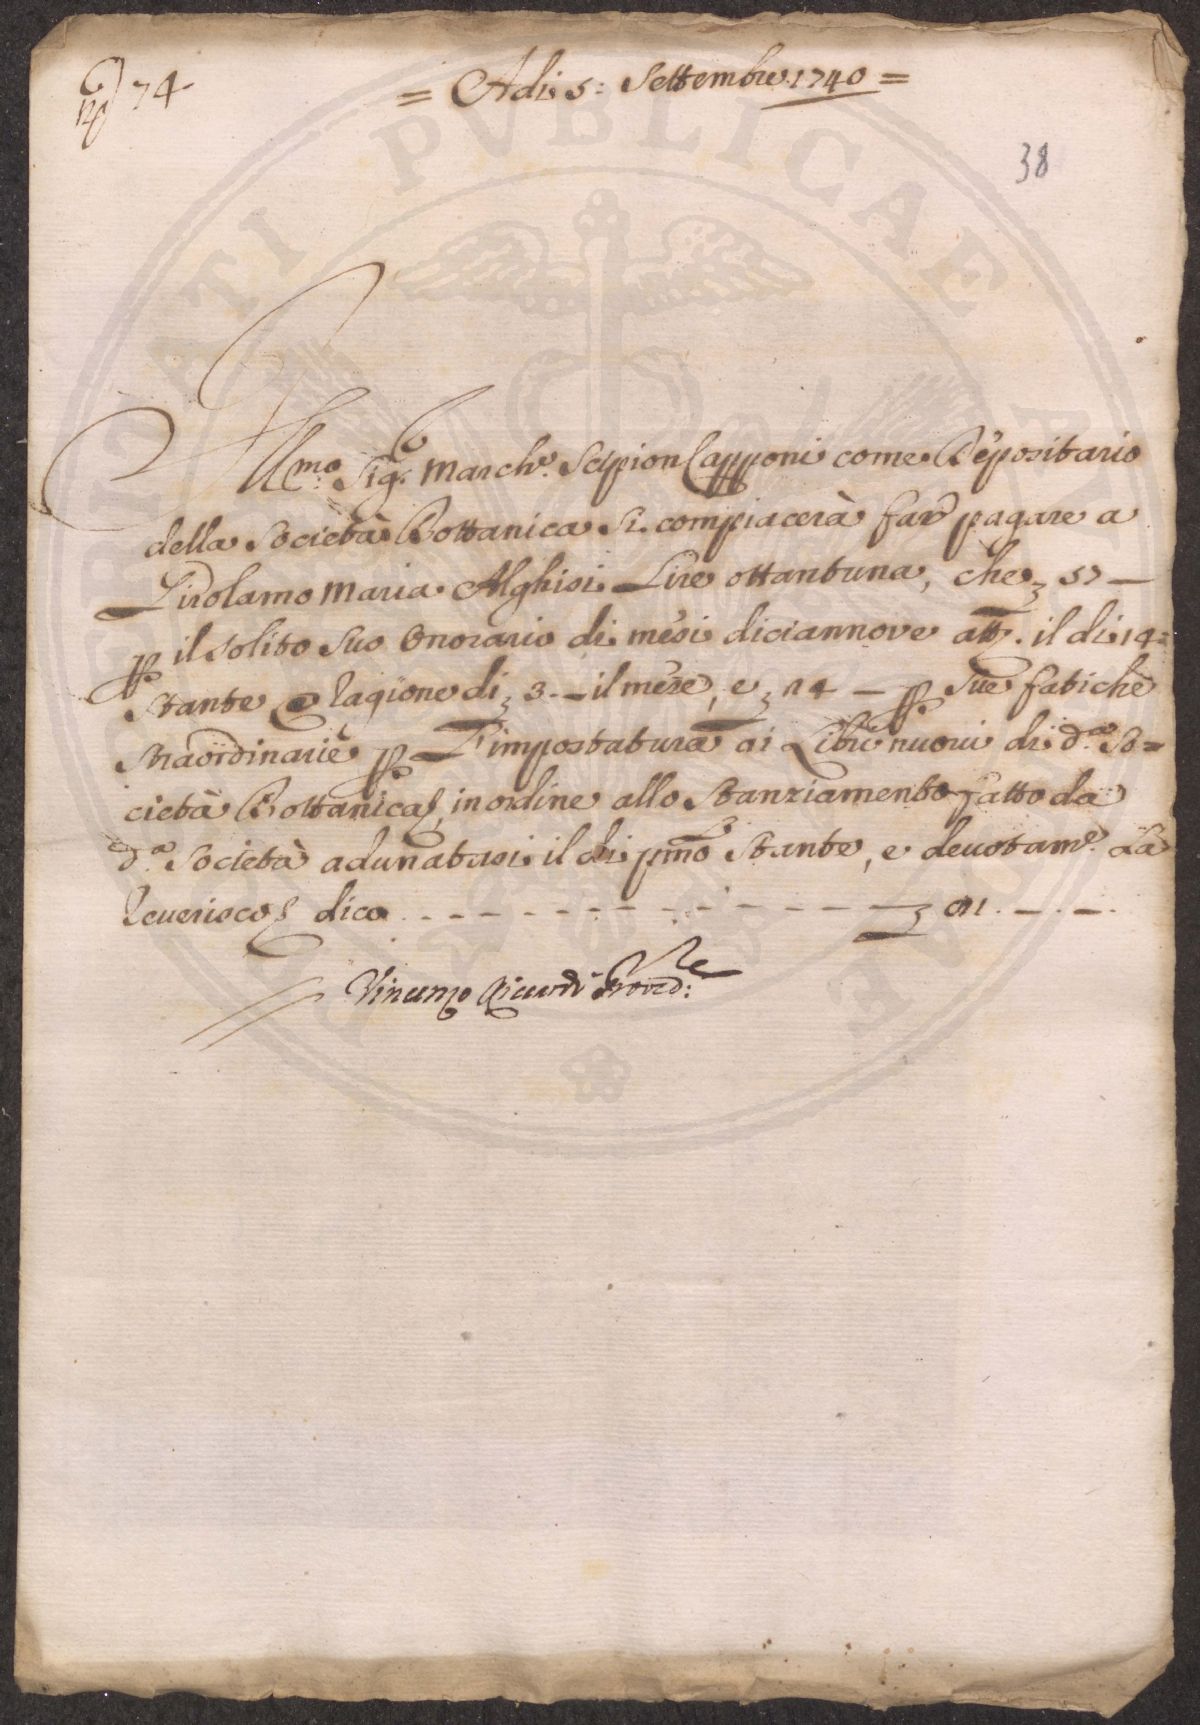 N.º 74
= Adi 5: Settembre 1740 =
38
Ill.mo Sig.r March.e Scipion Capponi come Depositario
della Società Bottanica si compiacerà far pagare a
Girolamo Maria Alghisi Lire ottantuna, che 57 —
p il solito suo Onorario di mesi diciannove att. il di 14:
Stante a ragione di 3. — il mese, e 24 — p sue fatiche
straordinarie p L'impostatura ai Libri nuovi di d.a So=
cietà Bottanica, in ordine allo Stanziamento fatto da
d.a Società adunatasi il di pmo Stante, e devotam.e La
reverisco, dico - - - - - - - - - - - 81. — . —
Vincenzo Prored:re
PVBLICAE